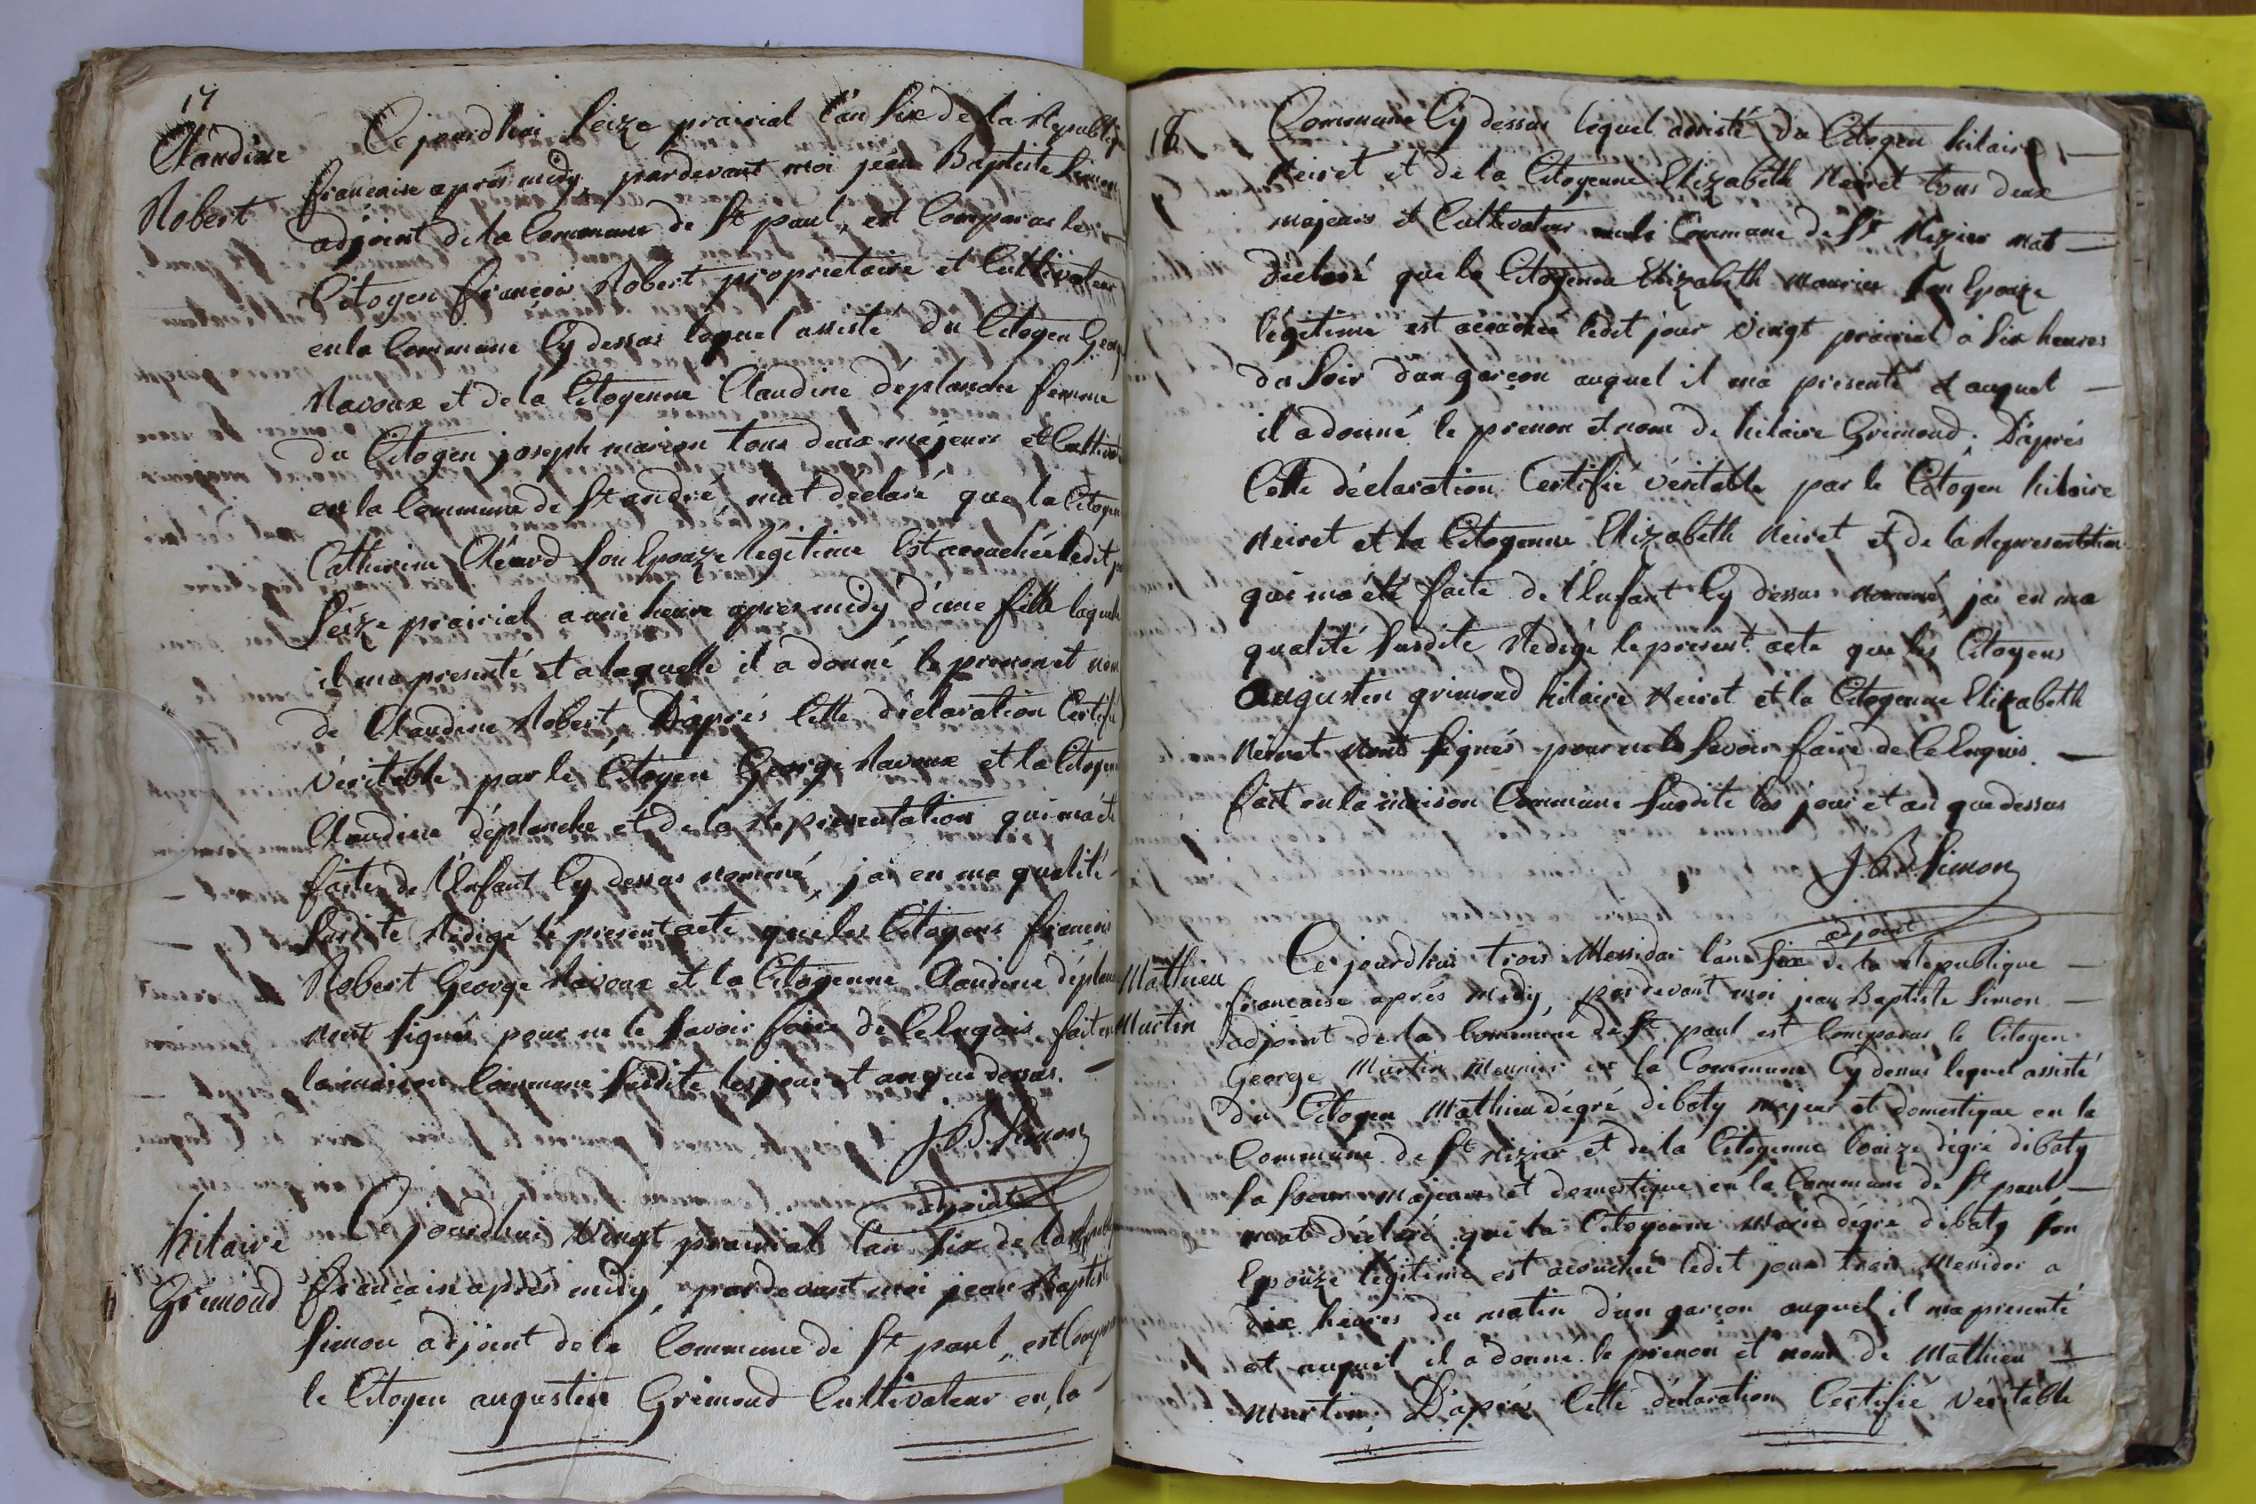 17
Claudine
Robert
Ce jourdhui Seize prairial l'an Six de la Republiq
francaise aprés midy, pardevant moi jean Baptiste Simon
adjoint de la Commune de St paul, est Comparus le
Citoyen francois Robert proprietaire et Cultivateur
en la Commune Cy dessus lequel assisté du Citoyen Georg
Ravoux et de la Citoyenne Claudine déplanche femme
du Citoyen joseph marion tous deux majeurs et Cultivat
en la Commune de St andré, mat declaré que la Citoyen
Catherine Clérard Son Epouze légitime Est acouchée ledit
Seize prairial a une heure apres midy d'une fille laquelle
il ma presenté et a laquelle il a donné le prenom et nom
de Claudine Robert, D'aprés Cette déclaration Certifié
véritable par le Citoyen George Ravoux et la Citoyen
Claudine déplanche et de la Representation qui ma été
faite de l'Enfant Cy dessus nommé, jai en ma qualité
Susdite Rédigé le present acte que les Citoyens francois
Robert George Ravoux et la Citoyenne Claudine déplan
nont Signés pour ne le Savoir faire de Ce Enquis fait en
la maison Commune Susdite les jour et an que dessus.
J. B. Simon
adjoint
hilaire
Grimoud
Ce jourdhui vingt prairial l'an Six de la Repub
francaise aprés midy, pardevant moi jean Baptiste
Simon adjoint de la Commune de St paul, est Comparu
le Citoyen augustin Grimoud Cultivateur en la
18
Commune Cy dessus lequel assisté du Citoyen hilaire
Neiret et de la Citoyenne Elizabeth Neiret tous deux
majeurs et Cultivateur en la Commune de St Nizier mat
Déclaré que la Citoyenne Elizabeth Mourier Son Epouze
légitime est acouchée ledit jour vingt prairial à Six heures
du Soir d'un garçon auquel il ma presenté et auquel
il a donné le prenom et nom de hilaire Grimoud. D'aprés
Cette déclaration Certifié véritable par le Citoyen hilaire
Neiret et la Citoyenne Elizabeth Neiret et de la Representation
qui ma été faite de l'Enfant Cy dessus nommé, jai en ma
qualité Susdite Redigé le present acte que les Citoyens
Augustin grimoud hilaire Neiret et la Citoyenne Elizabeth
Neiret nont Signés pour ne le Savoir faire de Ce Enquis.
fait en la maison Commune Susdite les jour et an que dessus
J. B. Simon
adjoint
Mathieu
Martin
Ce jourdhui trois Messidor l'an Six de la Republique
francaise aprés Midy, pardevant moi jean Baptiste Simon
adjoint de la Commune de St paul est Comparus le Citoyen
George Martin Meunier en la Commune Cy dessus lequel assisté
du Citoyen Mathieu dégré dibaty majeur et domestique en la
Commune de St Nizier et de la Citoyenne louize dégré dibaty
Sa Soeur majeure et domestique en la Commune de St paul
mat Déclaré que la Citoyenne Marie dégré dibaty Son
Epouze légitime est acouchée ledit jour trois Messidor a
dix heures du matin d'un garçon auquel il ma presenté
et auquel il a donné le prenom et nom de Mathieu
Martin. D'aprés Cette déclaration Certifié véritable